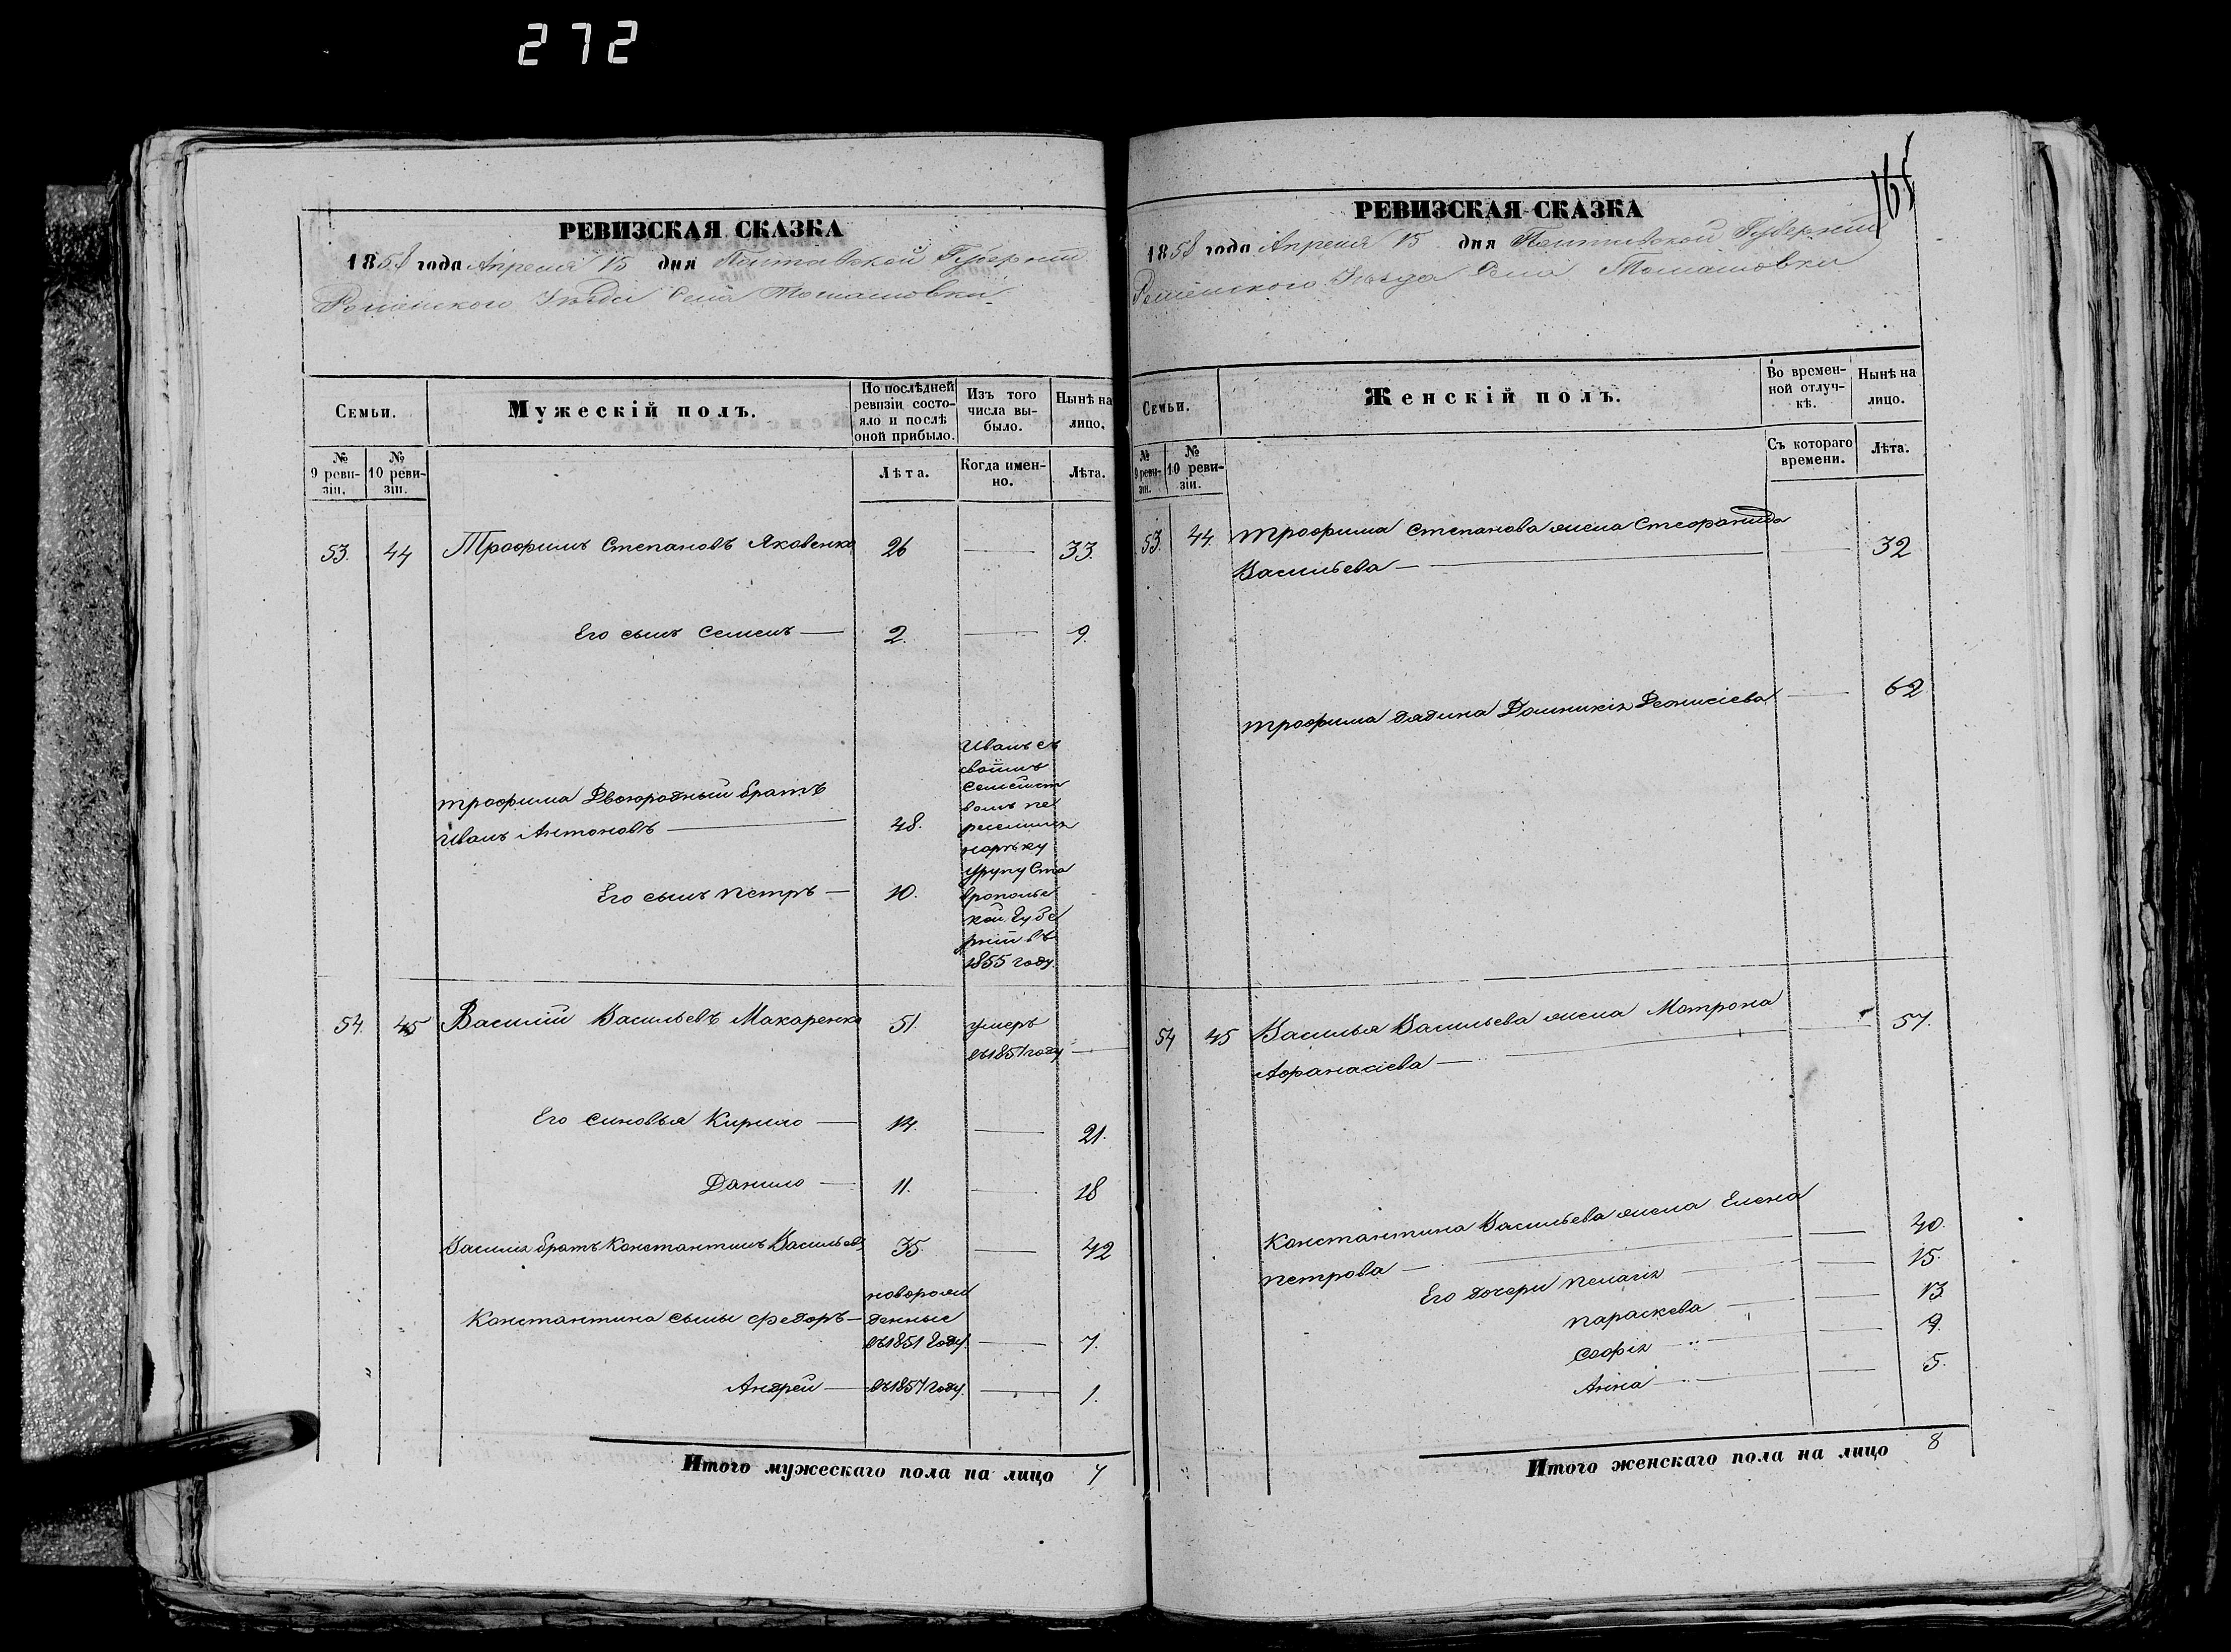 272
РЕВИЗСКАЯ СКАЗКА
1858 года Апреля 15 дня Полтавской Губерніи
Роменского Уѣзда Села Томашовки
Семьи.
Мужескій полъ.
По послѣдней ревизіи состояло и послѣ оной прибыло.
Изъ того числа выбыло.
Нынѣ на лицо.
№ 9 ревизіи.
№ 10 ревизіи.
Лѣта.
Когда именно.
Лѣта.
53. 44 Трофимъ Степановъ Яковенко 26 — 33.
Его сынъ Семенъ — 2. — 9.
Трофима Двоюродный братъ
Иванъ Антоновъ — 48.
Его сынъ Петръ — 10.
Иванъ съ
своимъ
семейст
вомъ пе
реселился
нарѣку
Урупу Ста
врополье
кой Губе
рніи въ
1855 году.
54. 45 Василій Васильевъ Макаренко 51. умеръ
въ1857году —
Его синовья Кирило — 14. — 21.
Данило — 11. — 18
Василія братъ Константинъ Васильевъ 35. — 42
Константина сыны Федоръ — новорож
денные
въ1851 году. — 7.
Андрей — въ1857 году. — 1.
Итого мужескаго пола на лицо 7
165
РЕВИЗСКАЯ СКАЗКА
1858 года Апреля 15 дня Полтавской Губерніи
Роменского Уѣзда Села Томашовки
Семьи.
Женскій полъ.
Во временной отлучкѣ.
Нынѣ на лицо.
№ 9 ревизіи.
№ 10 ревизіи.
Съ котораго времени.
Лѣта.
53. 44. Трофима Степанова жена Стефанида
Васильева — 32
Трофима дядина Домникія Деонисіева — 62
54 45 Василья Васильева жена Мотрона
Афанасіева — 57.
Константина Васильева жена Елена
Петрова — 40.
Его дочери Пелагія — 15.
Параскева — 13
Софія — 9.
Анна — 5.
Итого женскаго пола на лицо 8